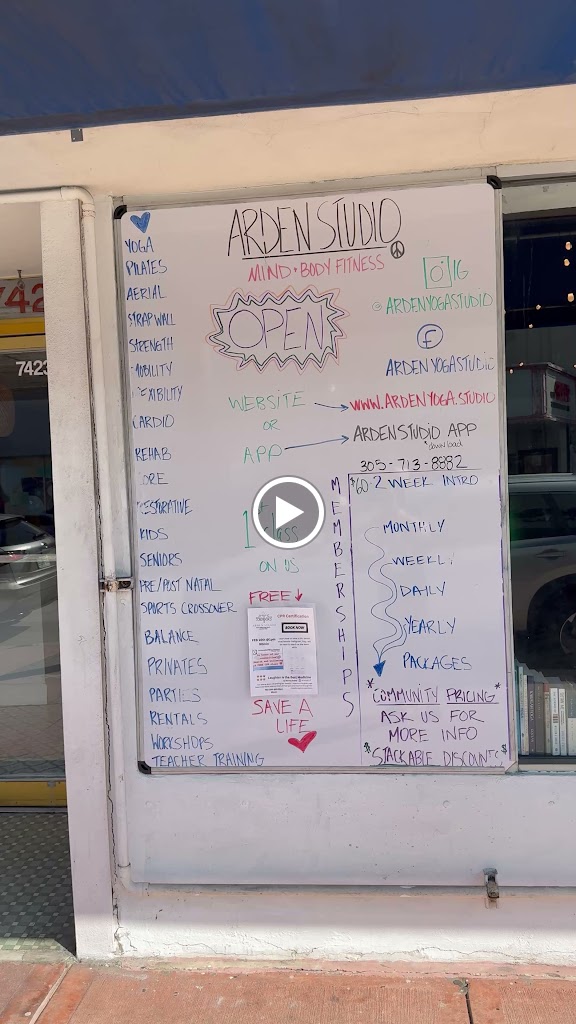 ARDEN STUDIO
MIND • BODY FITNESS
OPEN
IG
@ARDENYOGASTUDIO
f
ARDENYOGASTUDIO
WEBSITE
OR
APP
WWW.ARDENYOGA.STUDIO
ARDENSTUDIO APP
download
305-713-8882
YOGA
PILATES
AERIAL
STRAP WALL
STRENGTH
MOBILITY
FLEXIBILITY
CARDIO
REHAB
CORE
RESTORATIVE
KIDS
SENIORS
PRE/POST NATAL
SPORTS CROSSOVER
BALANCE
PRIVATES
PARTIES
RENTALS
WORKSHOPS
TEACHER TRAINING
1ST
CLASS
ON US
FREE
CPR Certification
BOOK NOW
Laughter is the Best Medicine
SAVE A
LIFE
MEMBERSHIPS
$60-2 WEEK INTRO
MONTHLY
WEEKLY
DAILY
YEARLY
PACKAGES
*COMMUNITY PRICING*
ASK US FOR
MORE INFO
$STACKABLE DISCOUNTS$
742
7423